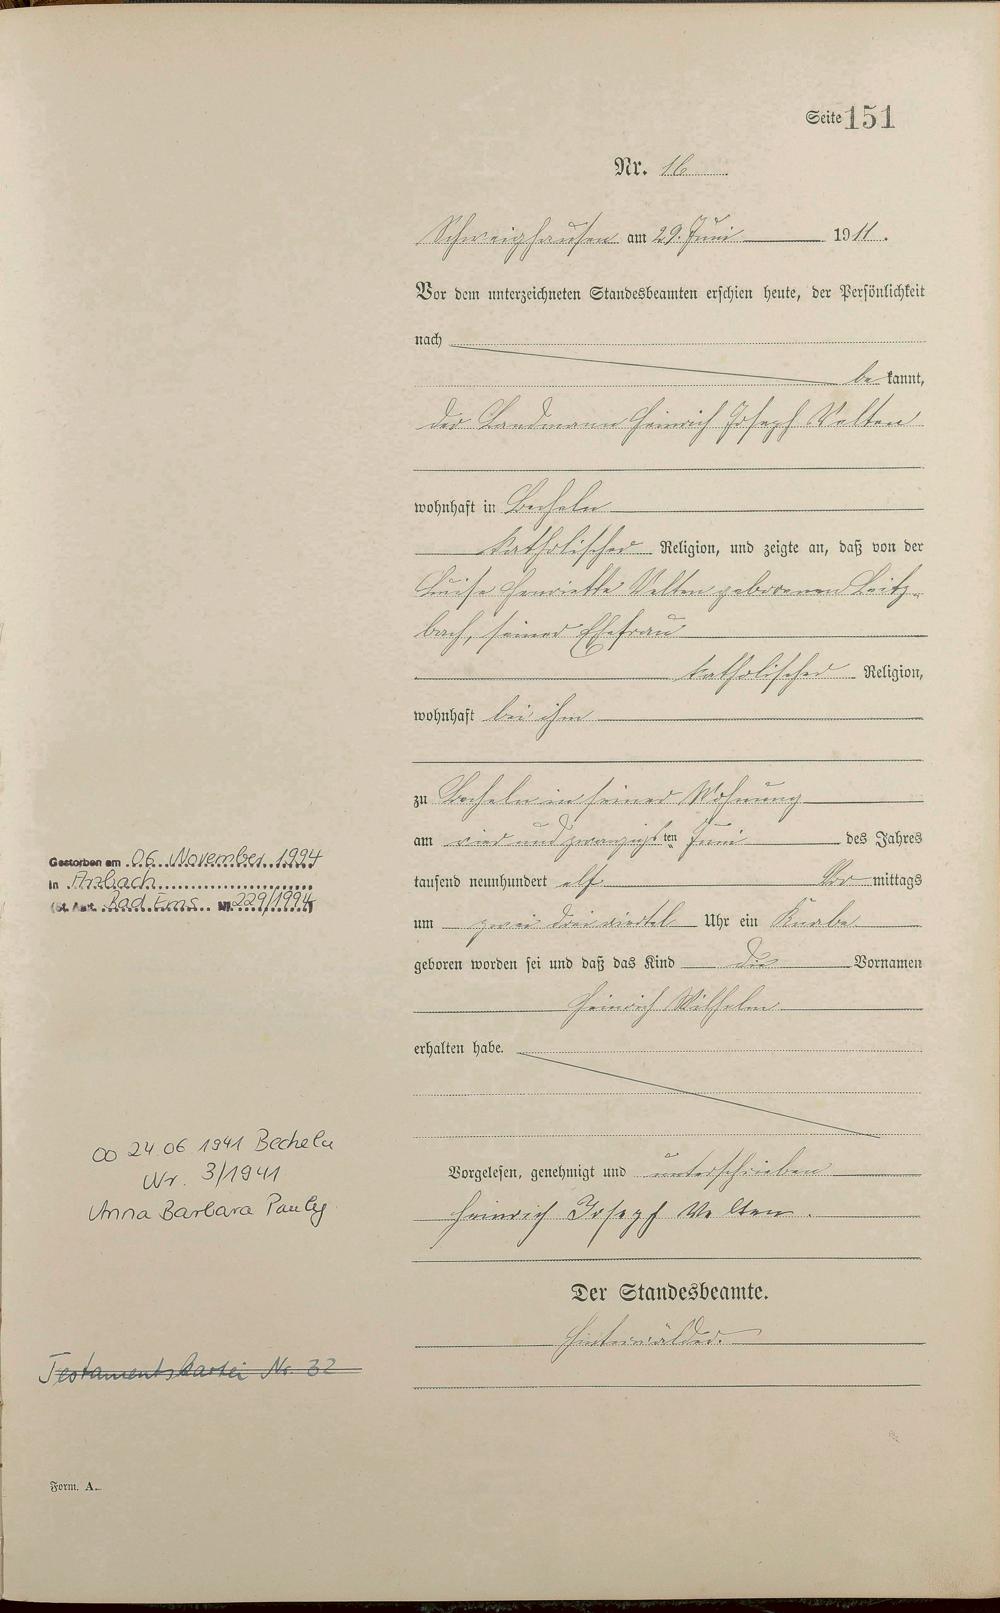 Seite 151
Nr. 16
Schweighausen am 29. Juni 1911.
Vor dem unterzeichneten Standesbeamten erschien heute, der Persönlichkeit
nach
be kannt,
der Landmann Heinrich Joseph Velten
wohnhaft in Becheln
katholischer Religion, und zeigte an, daß von der
Luise Henriette Velten geborenen Leitz-
bach, seiner Ehefrau
katholischer Religion,
wohnhaft bei ihm
zu Becheln in seiner Wohnung
am vier und zwanzigsten Juni des Jahres
tausend neunhundert elf Vor mittags
um zwei drei viertel Uhr ein Knabe
geboren worden sei und daß das Kind die Vornamen
Heinrich Wilhelm
erhalten habe.
Vorgelesen, genehmigt und unterschrieben
Heinrich Joseph Velten.
Der Standesbeamte.
Hinterwälder.
Gestorben am 06. November 1994
in Arzbach
(St. Amt. Bad Ems Nr. 229/1994)
oo 24 06 1941 Becheln
Nr. 3/1941
Anna Barbara Pauly
Testamentskartei Nr. 32
Form. A.